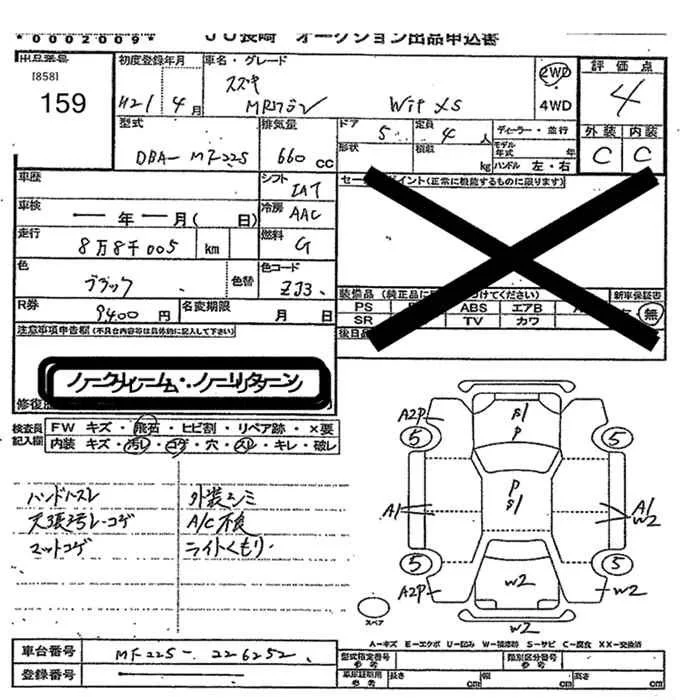 *0002009* JU長崎 オークション出品申込書
出品番号 [858] 159
初度登録年月 H21年 4月
車名・グレード スズキ MRワゴン Wit XS
2WD 4WD
評価点 4
外装 C 内装 C
型式 DBA-MF22S
排気量 660cc
ドア 5 定員 4人 ディーラー・並行
形状 積載 kg モデル年式 年 ハンドル 左・右
車歴
シフト IAT
車検 年 月(日)
冷房 AAC
走行 8万8千005 km
燃料 G
色 ブラック 色替 色コード ZJ3
R券 9400円 名変期限 月 日
セールスポイント(正常に機能するものに限ります)
装備品(純正品に けてください) 新車保証書
PS ABS エアB 無
SR TV カワ
後日品
注意事項申告欄(不具合内容等は具体的に記入して下さい)
ノークレーム・ノーリターン
修復歴
検査員記入欄 FW キズ・飛石・ヒビ割・リペア跡・×要
内装 キズ・汚レ・コゲ・穴・スレ・キレ・破レ
ハンドルスレ 外装シミ
天張汚レ・コゲ A/C不良
マットコゲ ライトくもり
A2P S1 P
5 5
P S1
A1 A1 W2
5 5
A2P W2
W2
スペア
A-キズ E-エクボ U-凹み W-補修跡 S-サビ C-腐食 XX-交換済
車台番号 MF22S-226252
登録番号
型式指定番号 参考 類別区分番号 参考
車庫証明用 参考 長さ cm 幅 cm 高さ cm